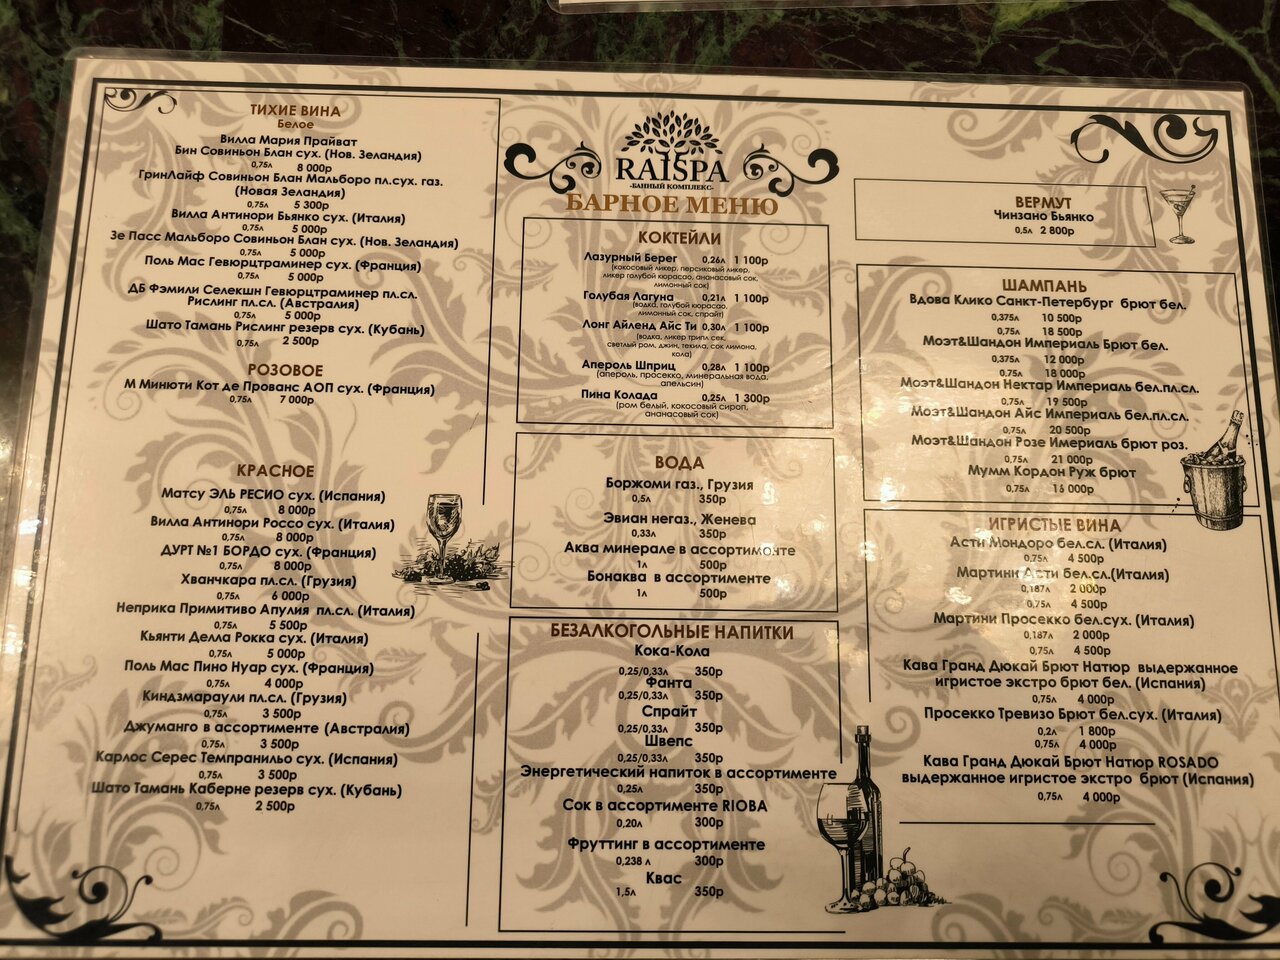 ТИХИЕ ВИНА
Белое
Вилла Мария Прайват
Бин Совиньон Блан сух. (Нов. Зеландия)
0,75л 8 000р
ГринЛайф Совиньон Блан Мальборо пл.сух. газ.
(Новая Зеландия)
0,75л 5 300р
Вилла Антинори Бьянко сух. (Италия)
0,75л 5 000р
Зе Пасс Мальборо Совиньон Блан сух. (Нов. Зеландия)
0,75л 5 000р
Поль Мас Гевюрцтраминер сух. (Франция)
0,75л 5 000р
ДБ Фэмили Селекшн Гевюрцтраминер пл.сл.
Рислинг пл.сл. (Австралия)
0,75л 5 000р
Шато Тамань Рислинг резерв сух. (Кубань)
0,75л 2 500р
РОЗОВОЕ
М Минюти Кот де Прованс АОП сух. (Франция)
0,75л 7 000р
КРАСНОЕ
Матсу ЭЛЬ РЕСИО сух. (Испания)
0,75л 8 000р
Вилла Антинори Россо сух. (Италия)
0,75л 8 000р
ДУРТ №1 БОРДО сух. (Франция)
0,75л 8 000р
Хванчкара пл.сл. (Грузия)
0,75л 6 000р
Неприка Примитиво Апулия пл.сл. (Италия)
0,75л 5 500р
Кьянти Делла Рокка сух. (Италия)
0,75л 5 000р
Поль Мас Пино Нуар сух. (Франция)
0,75л 4 000р
Киндзмараули пл.сл. (Грузия)
0,75л 3 500р
Джуманго в ассортименте (Австралия)
0,75л 3 500р
Карлос Серес Темпранильо сух. (Испания)
0,75л 3 500р
Шато Тамань Каберне резерв сух. (Кубань)
0,75л 2 500р
RAISPA
-БАННЫЙ КОМПЛЕКС-
БАРНОЕ МЕНЮ
КОКТЕЙЛИ
Лазурный Берег 0,26л 1 100р
(кокосовый ликер, персиковый ликер,
ликер голубой кюрасао, ананасовый сок,
лимонный сок)
Голубая Лагуна 0,21л 1 100р
(водка, голубой кюрасао,
лимонный сок, спрайт)
Лонг Айленд Айс Ти 0,30л 1 100р
(водка, ликер трипл сек,
светлый ром, джин, текила, сок лимона,
кола)
Апероль Шприц 0,28л 1 100р
(апероль, просекко, минеральная вода,
апельсин)
Пина Колада 0,25л 1 300р
(ром белый, кокосовый сироп,
ананасовый сок)
ВОДА
Боржоми газ., Грузия
0,5л 350р
Эвиан негаз., Женева
0,33л 350р
Аква минерале в ассортименте
1л 500р
Бонаква в ассортименте
1л 500р
БЕЗАЛКОГОЛЬНЫЕ НАПИТКИ
Кока-Кола
0,25/0,33л 350р
Фанта
0,25/0,33л 350р
Спрайт
0,25/0,33л 350р
Швепс
0,25/0,33л 350р
Энергетический напиток в ассортименте
0,25л 350р
Сок в ассортименте RIOBA
0,20л 300р
Фруттинг в ассортименте
0,238 л 300р
Квас
1,5л 350р
ВЕРМУТ
Чинзано Бьянко
0,5л 2 800р
ШАМПАНЬ
Вдова Клико Санкт-Петербург брют бел.
0,375л 10 500р
0,75л 18 500р
Моэт&Шандон Империаль Брют бел.
0,375л 12 000р
0,75л 18 000р
Моэт&Шандон Нектар Империаль бел.пл.сл.
0,75л 19 500р
Моэт&Шандон Айс Империаль бел.пл.сл.
0,75л 20 500р
Моэт&Шандон Розе Имериаль брют роз.
0,75л 21 000р
Мумм Кордон Руж брют
0,75л 16 000р
ИГРИСТЫЕ ВИНА
Асти Мондоро бел.сл. (Италия)
0,75л 4 500р
Мартини Асти бел.сл.(Италия)
0,187л 2 000р
0,75л 4 500р
Мартини Просекко бел.сух. (Италия)
0,187л 2 000р
0,75л 4 500р
Кава Гранд Дюкай Брют Натюр выдержанное
игристое экстро брют бел. (Испания)
0,75л 4 000р
Просекко Тревизо Брют бел.сух. (Италия)
0,2л 1 800р
0,75л 4 000р
Кава Гранд Дюкай Брют Натюр ROSADO
выдержанное игристое экстро брют (Испания)
0,75л 4 000р